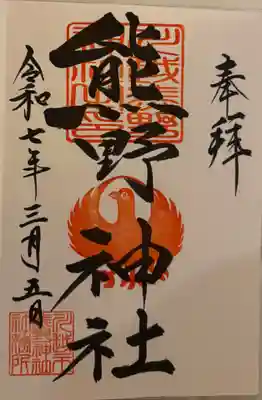 奉拝
熊野神社
令和七年三月五日